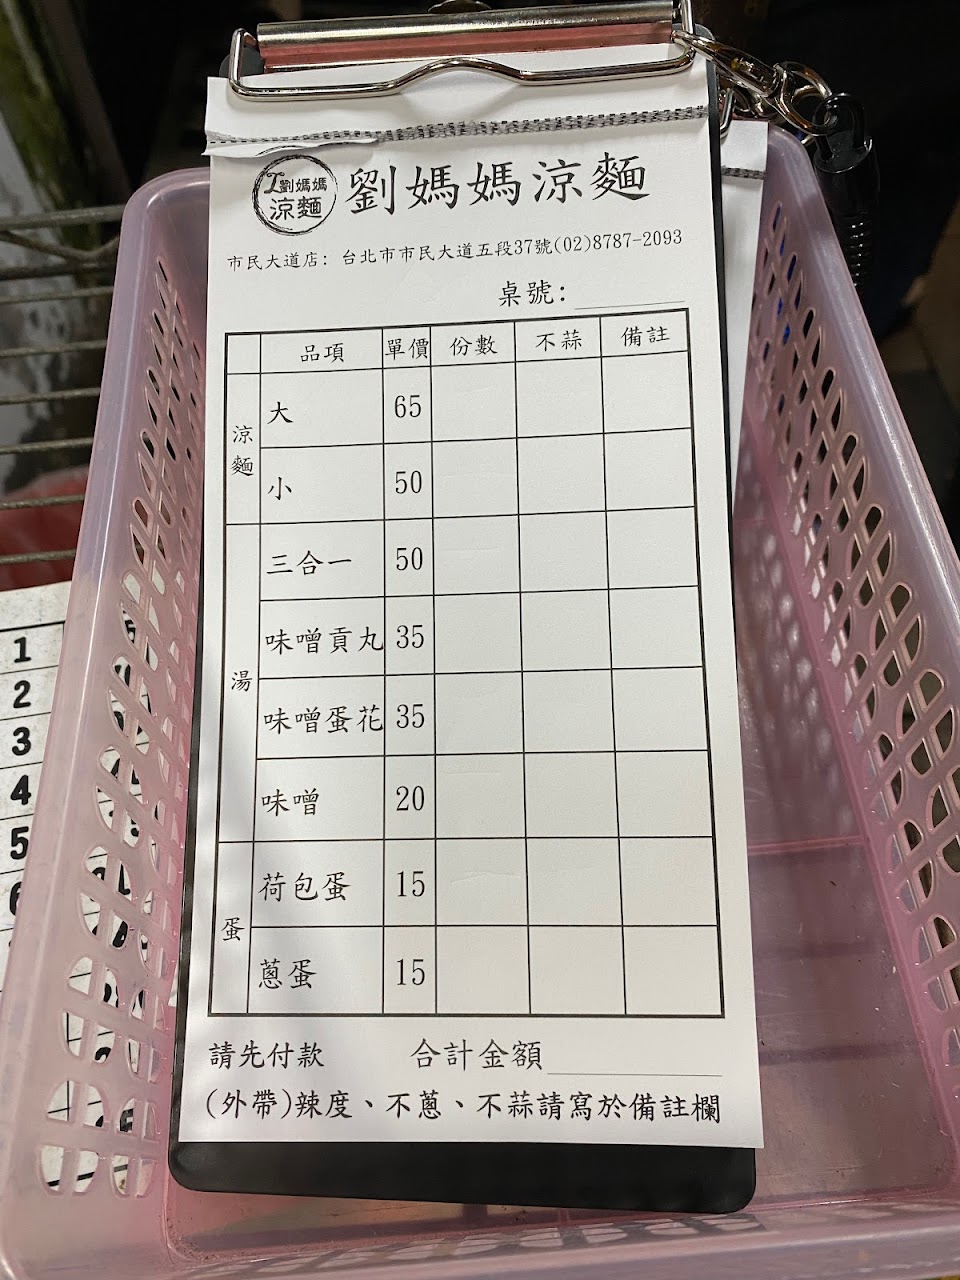 劉媽媽
涼麵
劉媽媽涼麵
市民大道店: 台北市市民大道五段37號(02)8787-2093
桌號:
品項 單價 份數 不蒜 備註
涼麵
大 65
小 50
湯
三合一 50
味噌貢丸 35
味噌蛋花 35
味噌 20
蛋
荷包蛋 15
蔥蛋 15
請先付款 合計金額
(外帶)辣度、不蔥、不蒜請寫於備註欄
1
2
3
4
5